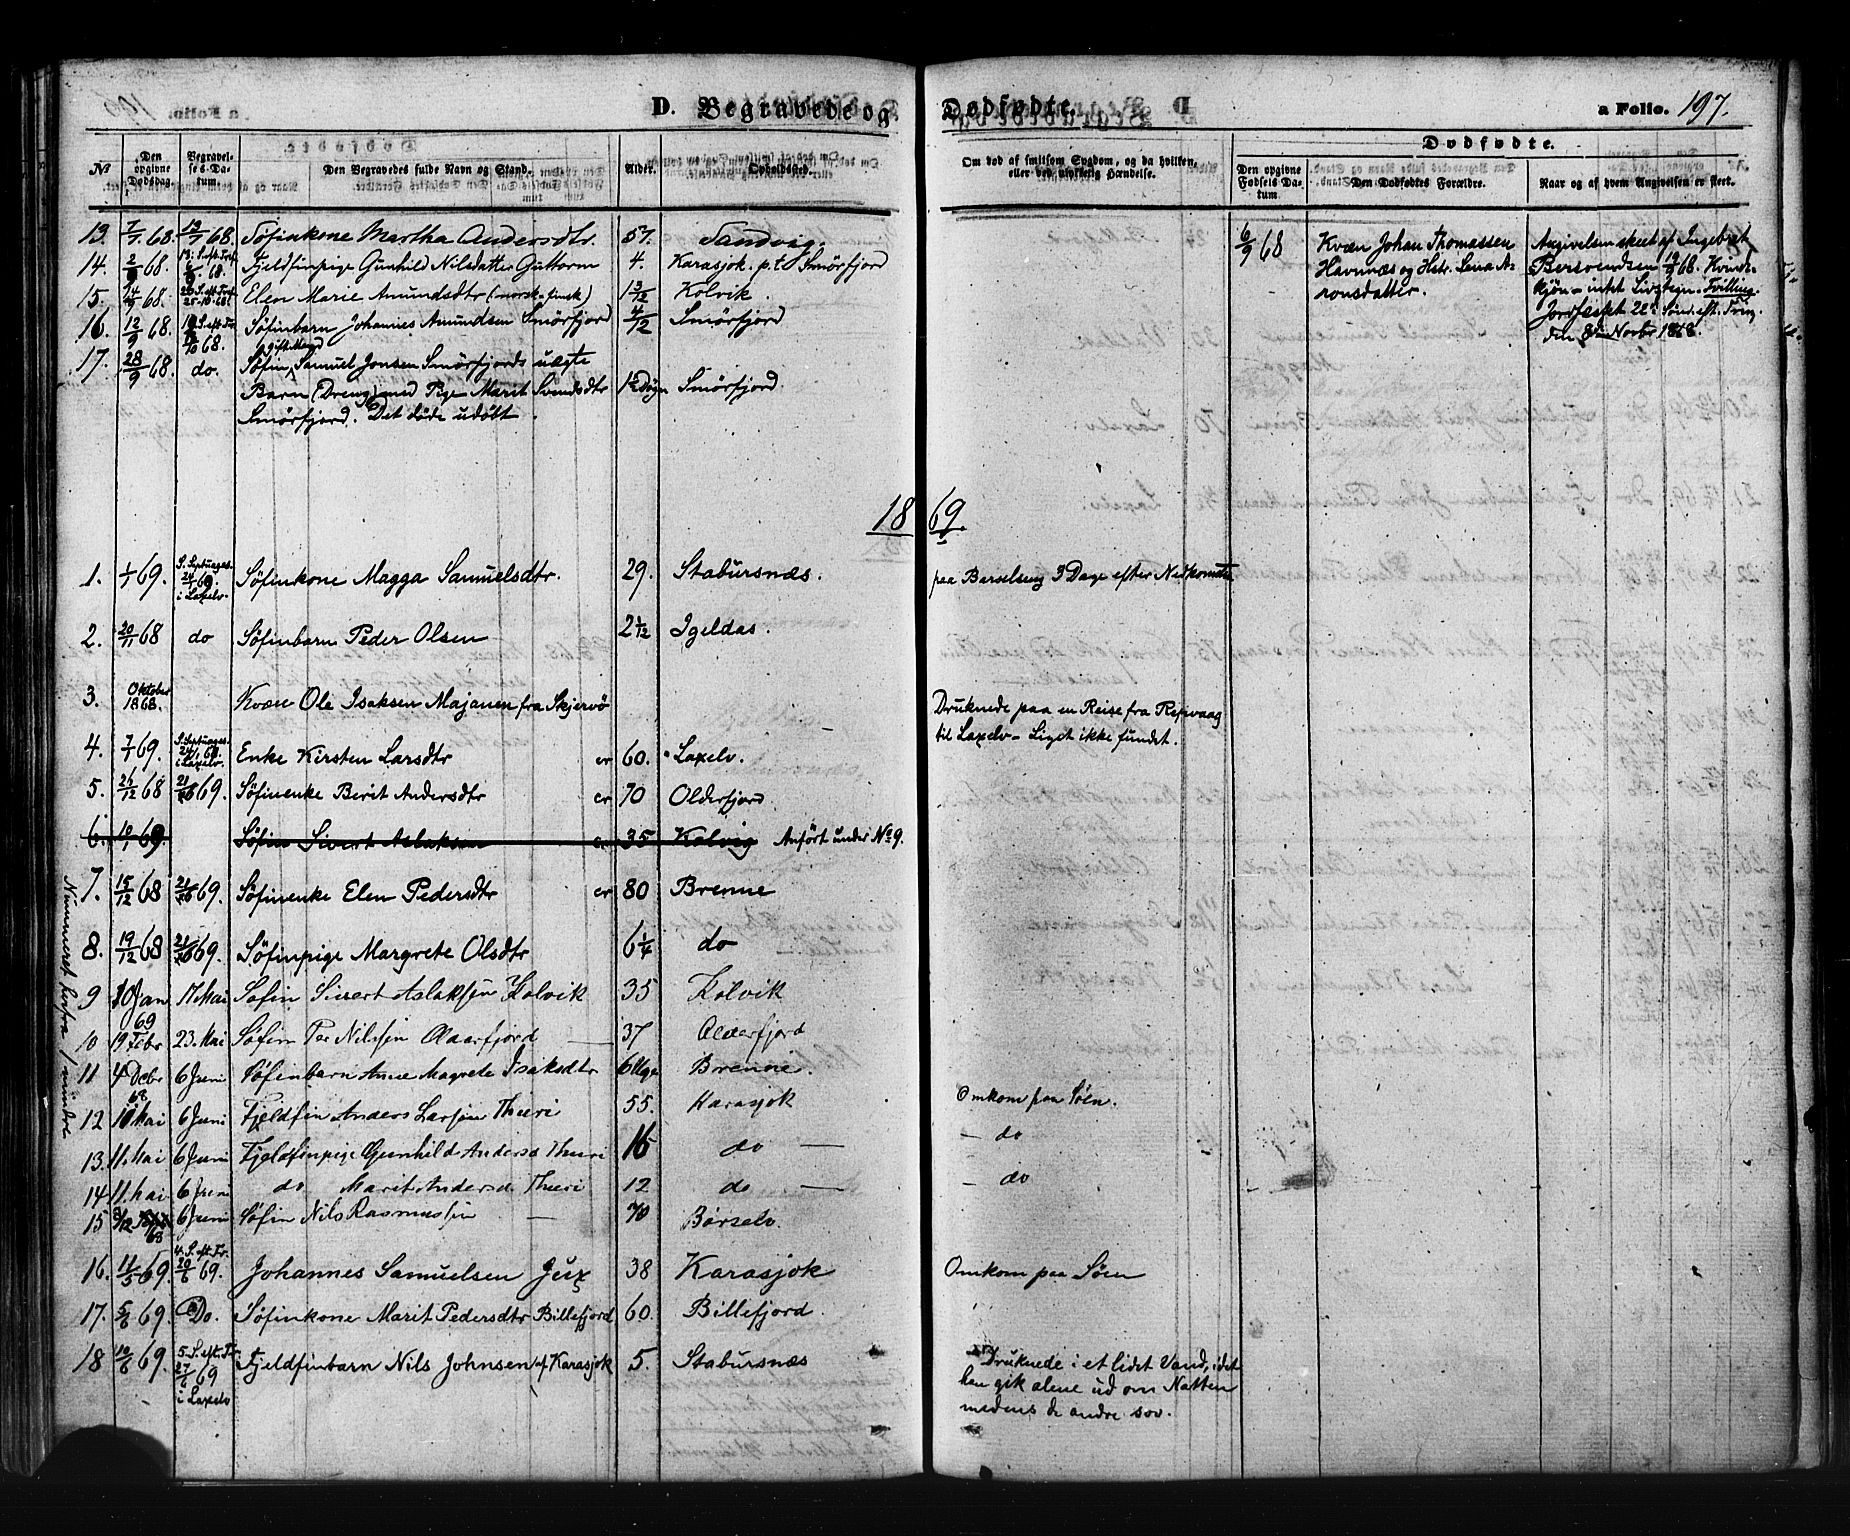 D. Begravede og Dødfødte. a Folio. 197.
No
Den opgivne Dødsdag.
Begravelses-Datum.
Den Begravedes fulde Navn og Stand.
Alder.
Opholdssted.
Om død af smitsom Sygdom, og da hvilken, eller ved ulykkelig Hændelse.
Dødfødte.
Den opgivne Fødsels Datum.
Den Dødfødtes Forældre.
Naar og af hvem Angivelsen er skeet.
13. 7/7 68. 12/7 68. Söfinkone Martha Andersdtr. 57. Sandvig.
14. 68. 68. Fjeldfinpige Gunhild Nilsdatter Guttorm 4. Karasjok p.t. Smörfjord
15. 14/9 68. 25-10-68. Elen Marie Amundsdtr (norsk-finsk) 1 3/12 Kolvik.
16. 12/9 68. 68. Söfinbarn Johannes Amundsen Smörfjord 4/12 Smörfjord
17. 28/9 68. do. Söfin gift Mand Samuel Jonsen Smörfjords uægte
Barn (Dreng) med Pige Marit Svendsdtr 1½ Døgn Smörfjord.
Smörfjord. Det döde udöbt.
6/9 68 Kvæn Johan Thomassen
Havnnæs og Hstr. Lena A-
ronsdatter.
Angivelsen skeet af Ingebret
Bersvendsen 19/9 68. Kvinde-
kjön - intet Livstegn. Tvilling.
Jordfæstet 22: Sönd. eft. Trin.
den 8de Novbr 1868.
1869.
1. 1/1 69. S. Septuages. 24/1 69. i Laxelv. Söfinkone Magga Samuelsdtr. 29. Stabursnæs. paa Barselseng 3 Dage efter Nedkomsten
2. 20/11 68 do Söfinbarn Peder Olsen 2 1/12 Igeldas.
3. Oktober 1868. Kvæn Ole Isaksen Majanen fra Skjervö Druknede paa en Reise fra Repvaag
til Laxelv - Liget ikke fundet.
4. 7/1 69. S. Septuages. 24/1 69. i Laxelv. Enke Kirsten Larsdtr er 60. Laxelv.
5. 26/12 68 69. Söfinenke Berit Andersdtr er 70 Olderfjord.
6. 10/1 69. Söfin Sivert Aslaksen er 35 Kolvig Anfört under No 9.
7. 15/12 68 69. Söfinenke Elen Pedersdtr er 80 Brenne
8. 19/12 68 69. Söfinpige Margrete Olsdtr 6¼ do
9 10 Jan 69 17 Mai Søfin Sivert Aslaksen Kolvik 35 Kolvik
10 19 Febr 23. Mai Søfin Per Nilssen Olderfjord 37 Olderfjord
11 4 Debr 68 6 Juni Søfinbarn Anne Magrete Isaksdtr 6 Uger Brenne.
12 10 Mai 6 Juni Fjeldfin Anders Larsen Thuri 55. Karasjok Omkom paa Søen.
13. 11. Mai 6 Juni Fjeldfinpige Gunhild Andersd Thuri 16 do — — do
14 11. Mai 6 Juni do Marit Andersd Thuri 12 do — — do
15 68 6 Juni Søfin Nils Rasmussen — 70 Børselv.
16. 11/5 69. 4. S. eft. Tr. 20/6 69. Johannes Samuelsen Jux 38 Karasjok Omkom paa Søen
17. 5/6 69. Do. Söfinkone Marit Pedersdtr Billefjord 60. Billefjord.
18 10/6 69. 5. S. eft. Tr. 27/6 69 i Laxelv Fjeldfinbarn Nils Johnsen af Karasjok 5. Stabursnæs Druknede i et lidet Vand, idet
han gik alene ud om Natten
medens de andre sov.
Nummeret herfra 1 mindre